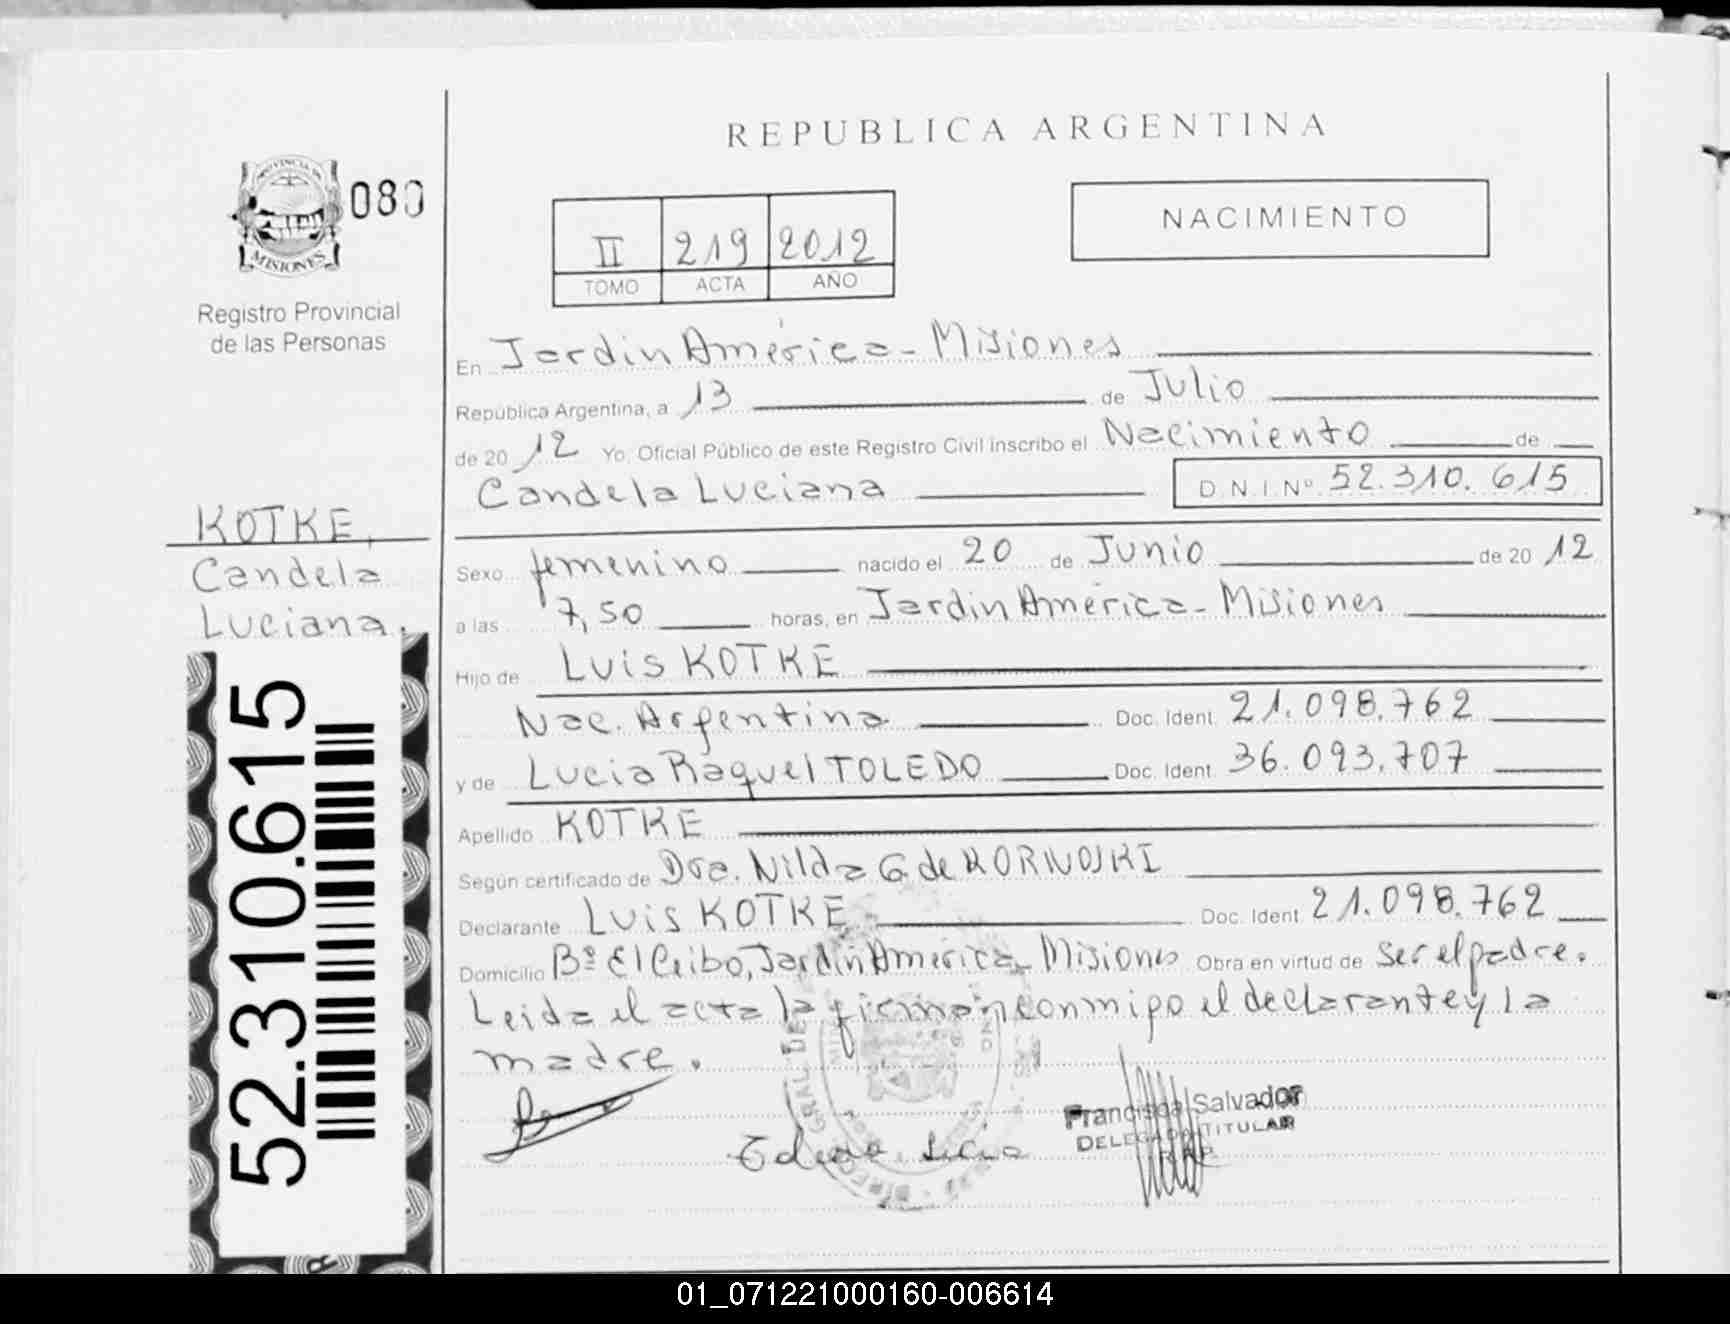 REPUBLICA ARGENTINA
PROVINCIA DE
MISIONES
080
Registro Provincial
de las Personas
II 219 2012
TOMO ACTA AÑO
NACIMIENTO
En Jardin América - Misiones
República Argentina, a 13 de Julio
de 20 12 Yo, Oficial Público de este Registro Civil Inscribo el Nacimiento de
Candela Luciana D.N.I. Nº 52.310.615
KOTKE,
Candela
Luciana.
Sexo femenino nacido el 20 de Junio de 20 12
a las 7,50 horas, en Jardin América - Misiones
Hijo de Luis KOTKE
Nac. Argentina Doc. Ident. 21.098.762
y de Lucia Raquel TOLEDO Doc. Ident. 36.093.707
Apellido KOTKE
Según certificado de Dra. Nilda G. de KORNOSKI
Declarante Luis KOTKE Doc. Ident. 21.098.762
Domicilio Bº El Ceibo, Jardin América - Misiones Obra en virtud de ser el padre.
Leida el acta la firman conmigo el declarante y la
madre.
52.310.615
Salvador
DELEGADO TITULAR
01_071221000160-006614